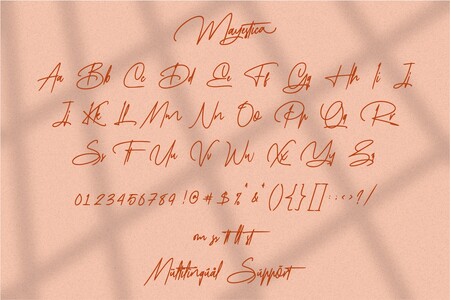 Mayestica
Aa Bb Cc Dd Ee Ff Gg Hh Ii Jj
Jj Kk Ll Mm Nn Oo Pp Qq Rr
Ss Tt Uu Vv Ww Xx Yy Zz
0123456789 !@#$%"&"(){}[]:;<>?/
tt st
Mültilingúál Süppört